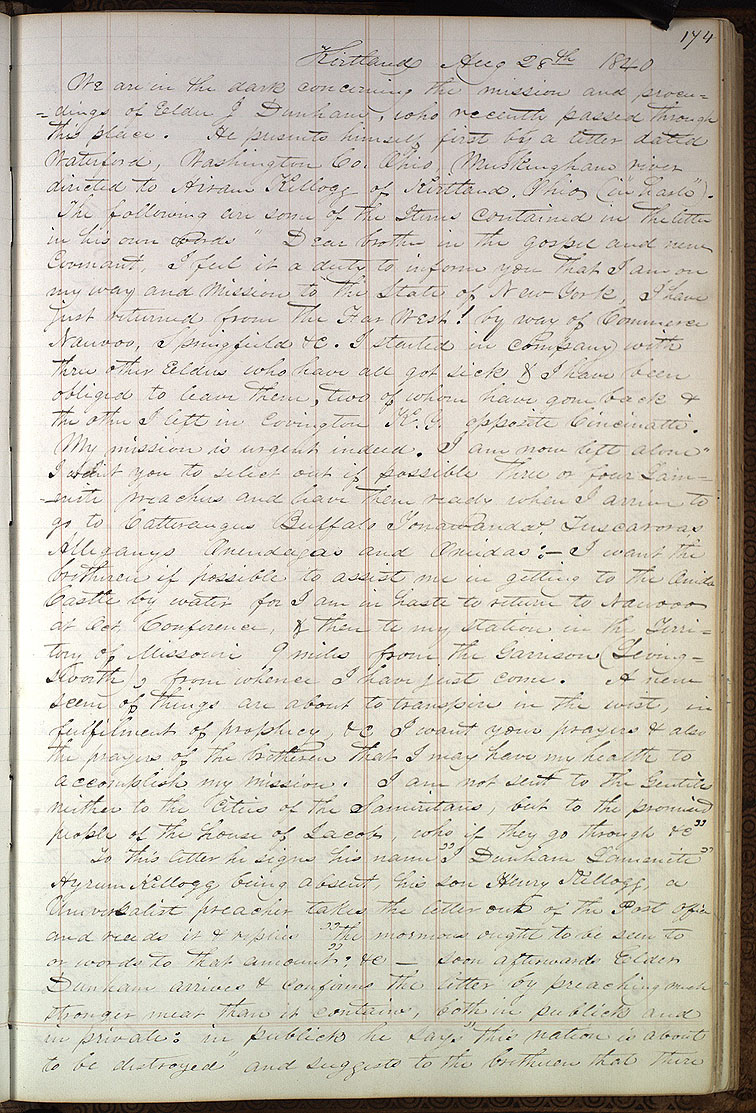 174
Kirtland Aug 28th 1840
We are in the dark concerning the mission and procee-
-dings of Elder J Dunham, who recently passed through
this place. He presents himself first by a letter dated
Waterford, Washington Co. Ohio, Muskingham river
directed to Hiram Kellogg of Kirtland, Ohio, (in haste").
The following are some of the Items contained in the letter
in his own words " Dear brother in the gospel and new
Covenant, I feel it a duty to inform you that I am on
my way and mission to the State of New York, I have
just returned from the Far West! by way of Commerce
Nauvoo, Springfield &c. I started in company with
three other Eelders who have all got sick & I have been
obliged to leave them, two of whom have gone back &
the other I left in Covington K.Y. opposite Cincinatti.
My mission is urgent indeed. I am now left alone"
I want you to select out if possible three or four Lam-
-nite preachers and have them ready when I arrive to
go to Catteraugus Buffalo Tonawanda, Tuscaroras
Alleganys Onendagas and Oneidas:— I want the
brotheren if possible to assist me in getting to the Onida
Castle by water for I am in haste to return to Nauvoo
at Oct Conference, & then to my station in the Terri-
tory of Missouri 9 miles from the Garrison (Leving-
Kworth, from whence I have just come. A new
seen of things are about to transpire in the west, in
fulfilment of prophecy, &c I want your prayers & also
the prayers of the brotheren that I may have my health to
accomplish my mission. I am not sent to the Gentiles
neither to the Cities of the Samaritans, but to the promised
people of the house of Jacob, who if they go through &c"
To this letter he signs his name "J Dunham Lamenite"
Hyrum Kellogg being absent, his son Henry Kellogg, a
Universalist preacher takes the letter out of the Post Office
and reads it & replies "the mormons ought to be seen to
or words to that amount"? &c — Soon afterwards Elder
Dunham arrives & confirms the letter by preaching much
stronger meat than it contains, both in publick and
in private: in publick he says "this nation is about
to be distroyed" and suggests to the brotheren that there